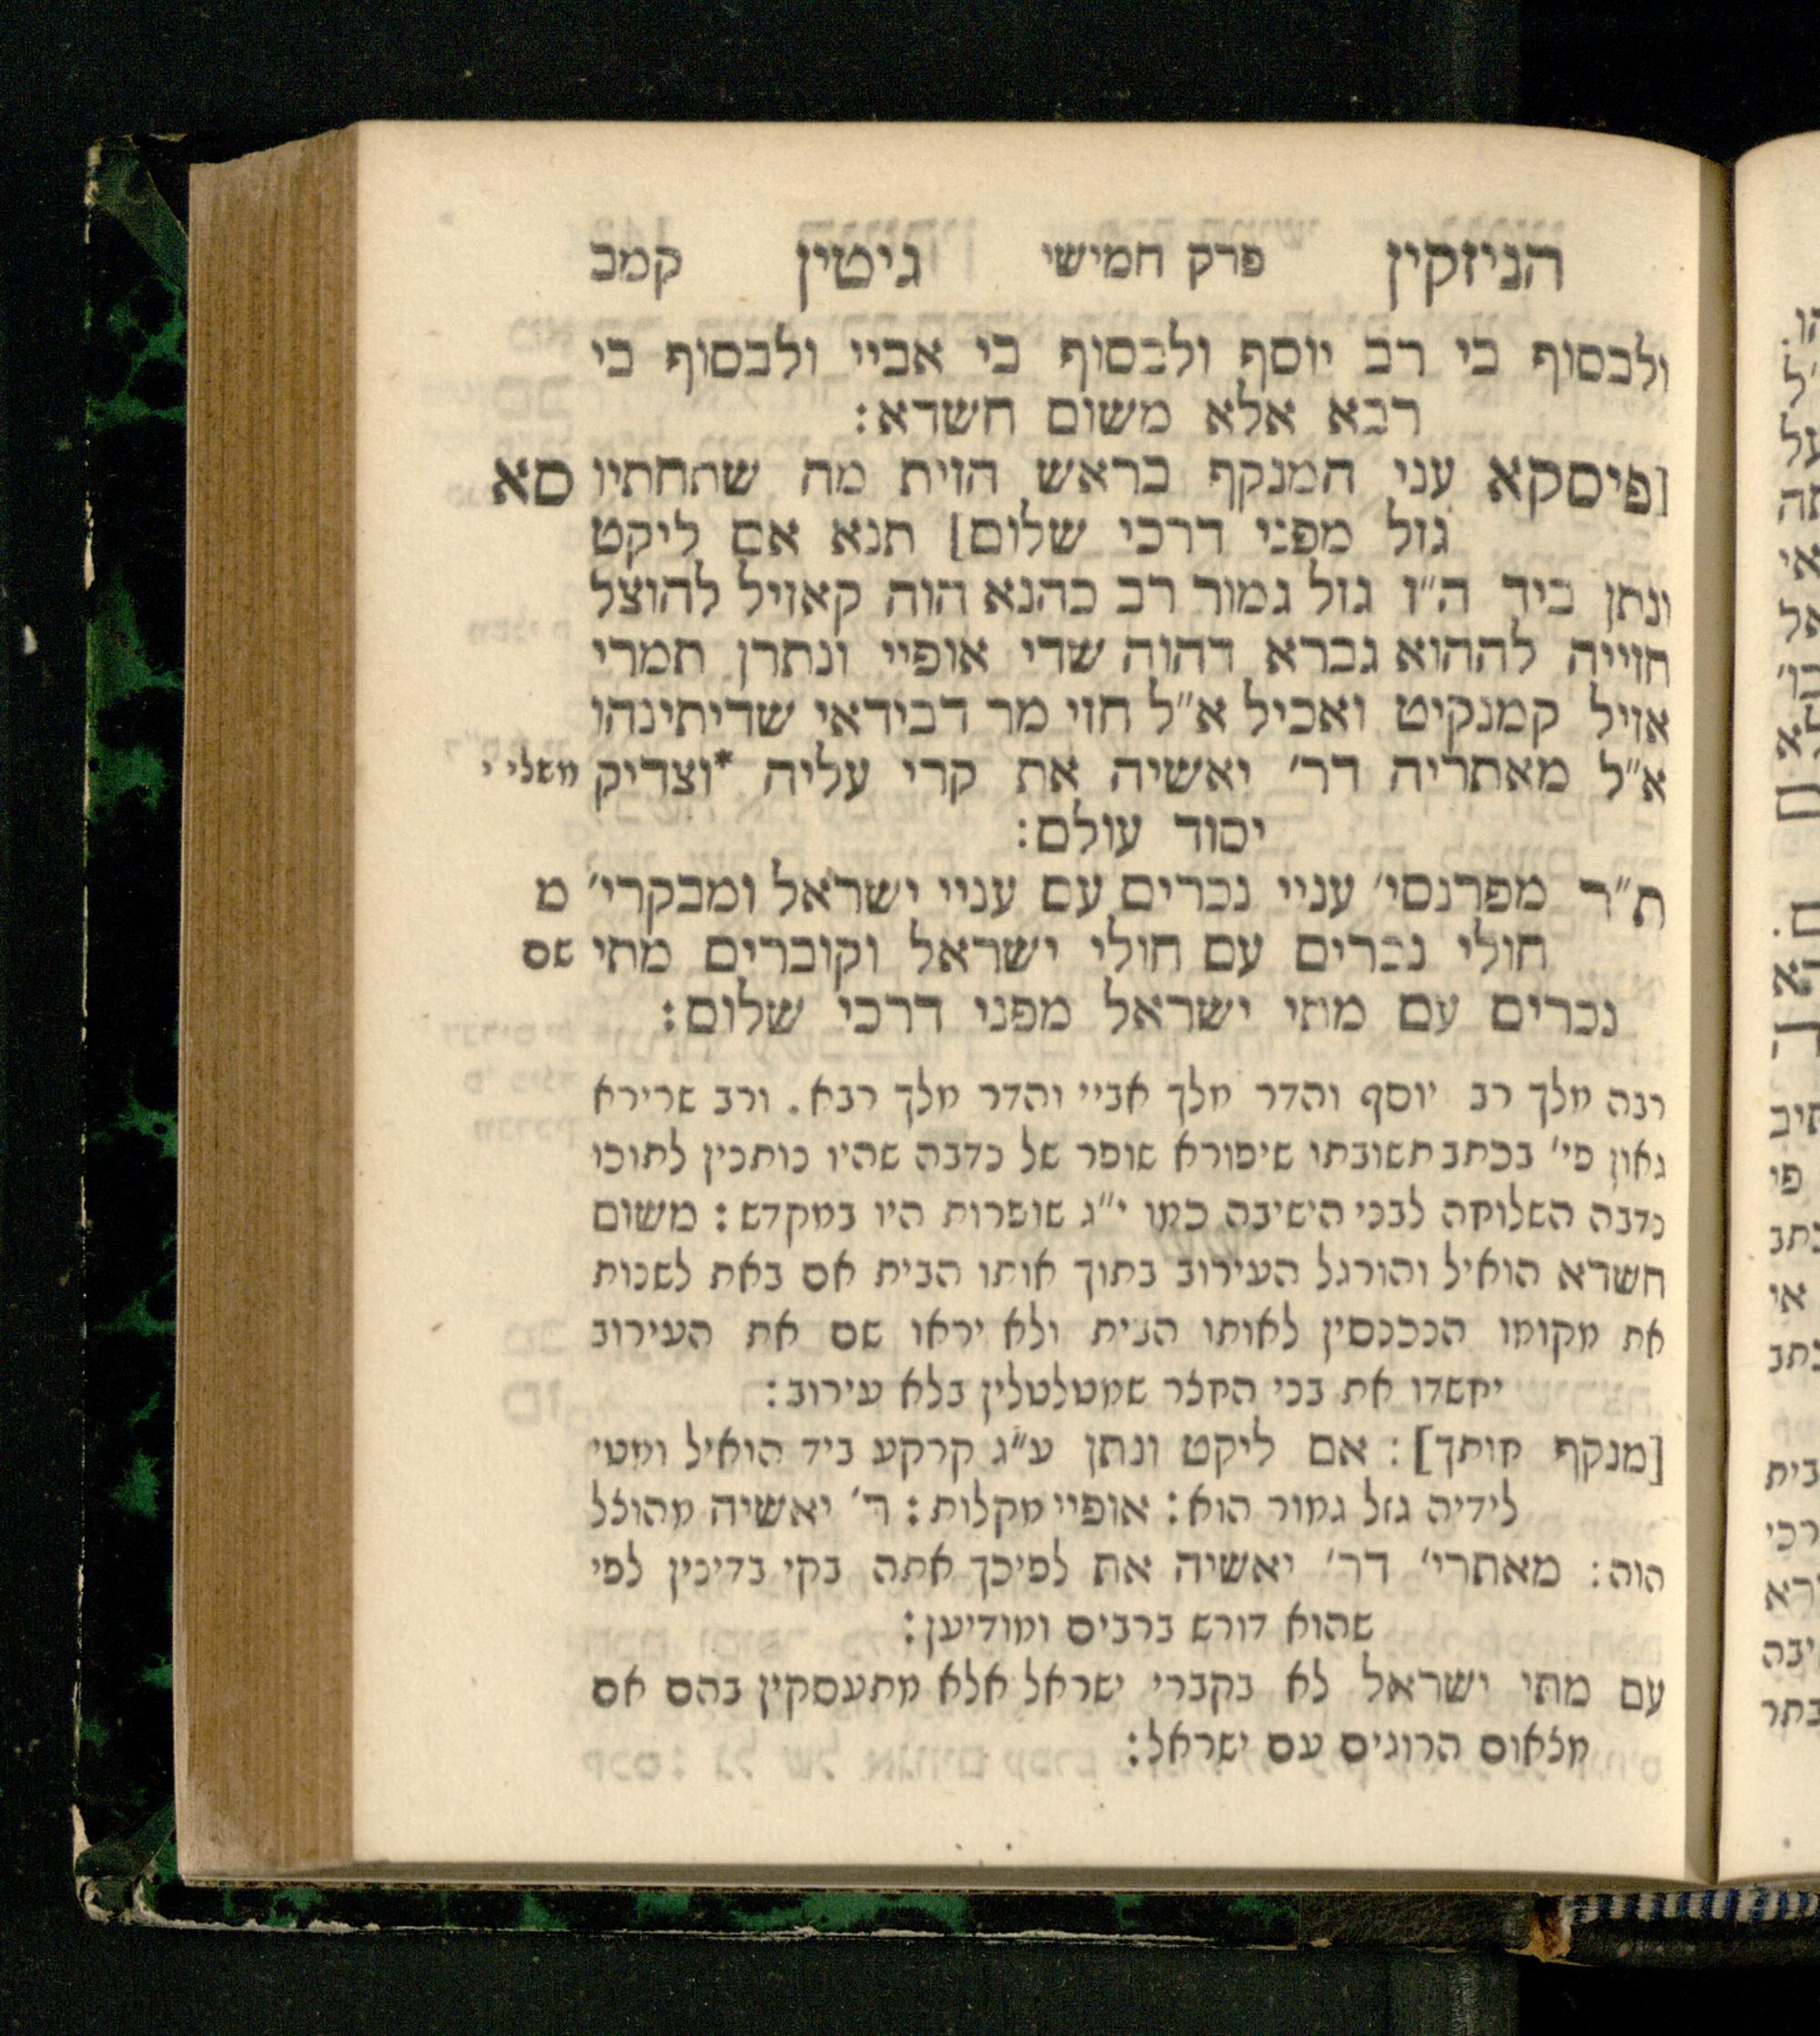 הניזקין פרק חמישי גיטין קמב
ולבסוף בי רב יוסף ולבסוף בי אביי ולבסוף בי
רבא אלא משום חשדא:
[פיסקא עני המנקף בראש הזית מה שתחתיו סא
גזל מפני דרכי שלום] תנא אם ליקט
ונתן ביד ה"ז גזל גמור רב כהנא הוה קאזיל להוצל
חזייה לההוא גברא דהוה שדי אופיי ונתרן תמרי
אזיל קמנקיט ואכיל א"ל חזי מר דבידאי שדיתינהו
א"ל מאתריה דר' יאשיה את קרי עליה *וצדיק משלי י
יסוד עולם:
ת"ר מפרנסי' עניי נכרים עם עניי ישראל ומבקרי' מ
חולי נכרים עם חולי ישראל וקוברים מתי שם
נכרים עם מתי ישראל מפני דרכי שלום:
רבה מלך רב יוסף והדר מלך אביי והדר מלך רבא. ורב שרירא
גאון פי' בכתב תשובתו שיפורא שופר של נדבה שהיו נותנין לתוכו
נדבה השלוחה לבני הישיבה כמו י"ג שופרות היו במקדש: משום
חשדא הואיל והורגל העירוב בתוך אותו הבית אם באת לשנות
את מקומו הנכנסין לאותו הבית ולא יראו שם את העירוב
יחשדו את בני החצר שמטלטלין בלא עירוב:
[מנקף חותך]: אם ליקט ונתן ע"ג קרקע ביד הואיל ומטי
לידיה גזל גמור הוא: אופיי מקלות: ר' יאשיה מהוצל
הוה: מאתרי' דר' יאשיה את לפיכך אתה בקי בדינין לפי
שהוא דורש ברבים ומודיען:
עם מתי ישראל לא בקברי ישראל אלא מתעסקין בהם אם
מצאום הרוגים עם ישראל: